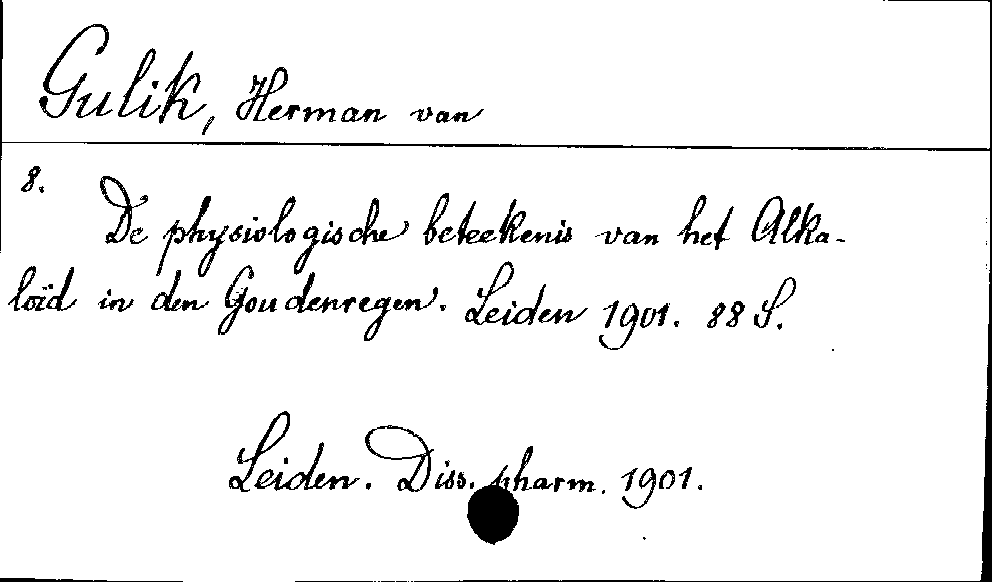 Gulik, Herman van
8.
De physiologische beteekenis van het Alka-
loïd in den Goudenregen. Leiden 1901. 88 S.
Leiden. Diss. pharm. 1901.